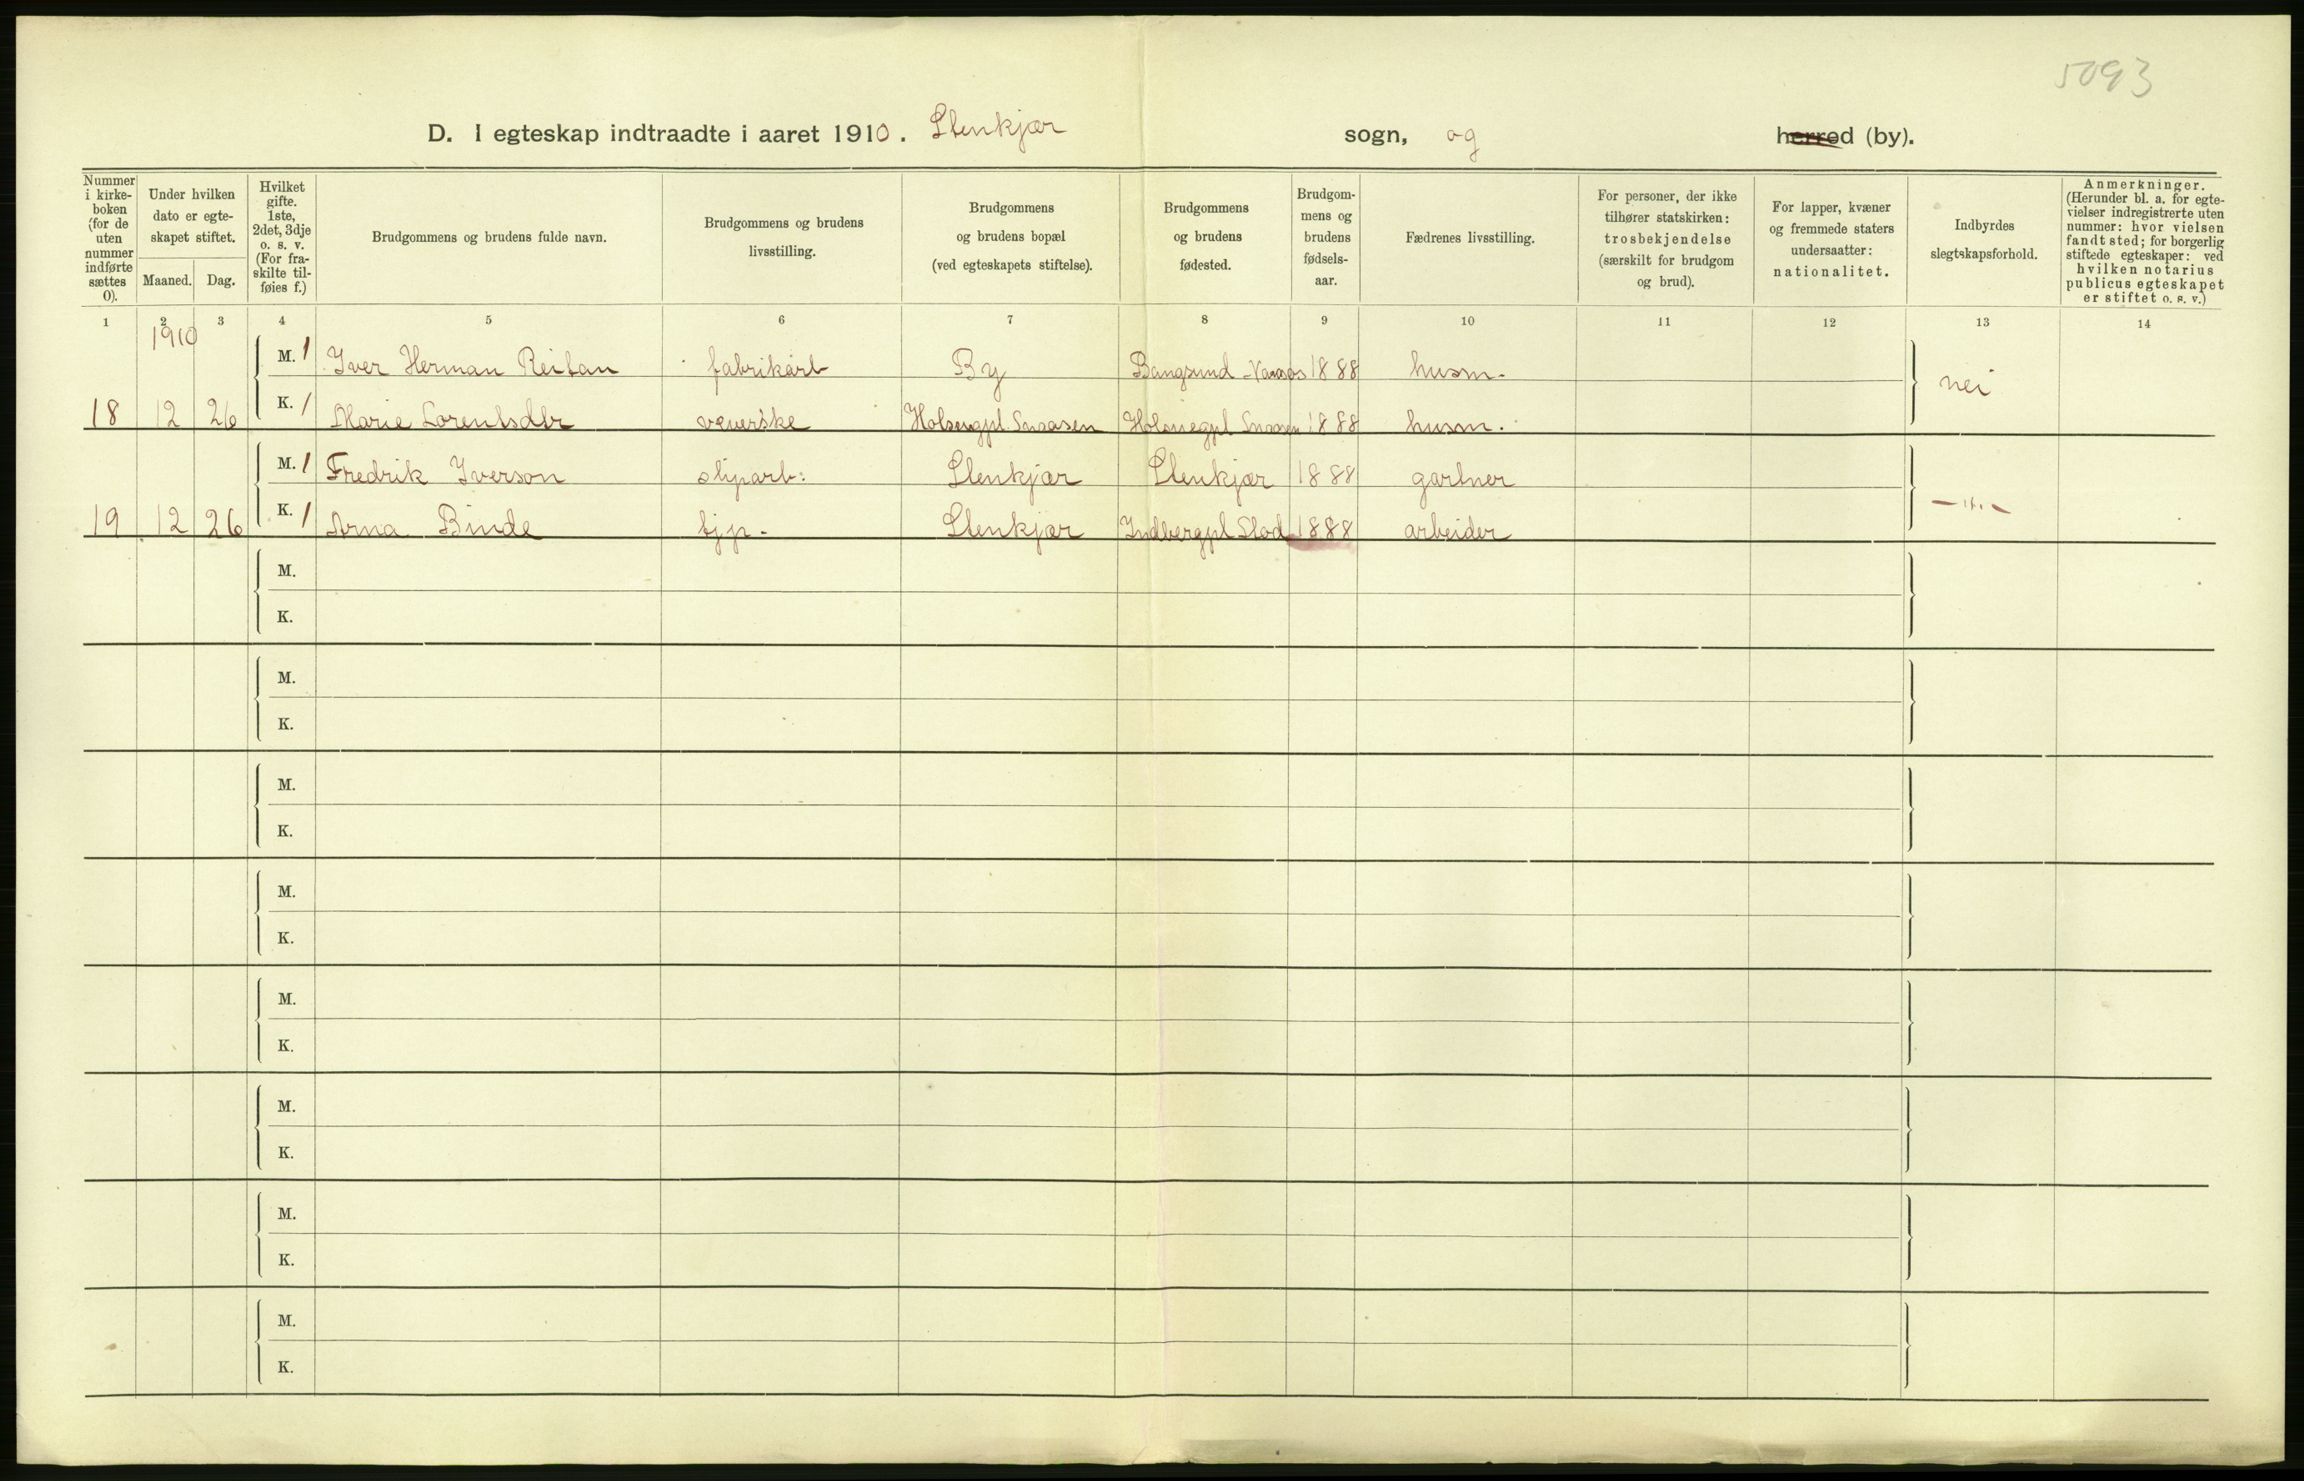 5093
D. I egteskap indtraadte i aaret 1910. Stenkjær sogn, og herred (by).
Nummer i kirkeboken (for de uten nummer indførte sættes 0).
Under hvilken dato er egteskapet stiftet.
Maaned. Dag.
Hvilket gifte. 1ste, 2det, 3dje o. s. v. (For fraskilte tilføies f.)
Brudgommens og brudens fulde navn.
Brudgommens og brudens livsstilling.
Brudgommens og brudens bopæl (ved egteskapets stiftelse).
Brudgommens og brudens fødested.
Brudgommens og brudens fødselsaar.
Fædrenes livsstilling.
For personer, der ikke tilhører statskirken: trosbekjendelse (særskilt for brudgom og brud).
For lapper, kvæner og fremmede staters undersaatter: nationalitet.
Indbyrdes slegtskapsforhold.
Anmerkninger. (Herunder bl. a. for egtevielser indregistrerte uten nummer: hvor vielsen fandt sted; for borgerlig stiftede egteskaper: ved hvilken notarius publicus egteskapet er stiftet o. s. v.)
1 2 3 4 5 6 7 8 9 10 11 12 13 14
1910
M. 1 Iver Herman Reitan fabrikarb By Bangsund 1888 husm. nei
18 12 26 K. 1 Marie Lorentsdtr veverske Holsengpl. Snaasen Snaasen 1888 husm.
M. 1 Fredrik Iverson sliparb: Stenkjær Stenkjær 1888 gartner
19 12 26 K. 1 Arna Binde tjp. Stenkjær Indbergpl Stod 1888 arbeider — " —
M.
K.
M.
K.
M.
K.
M.
K.
M.
K.
M.
K.
M.
K.
M.
K.